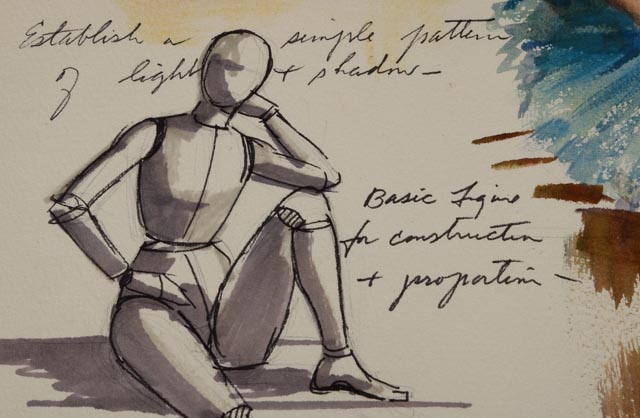 Establish a simple pattern
of light + shadow —
Basic Figure
for construction
+ proportion —